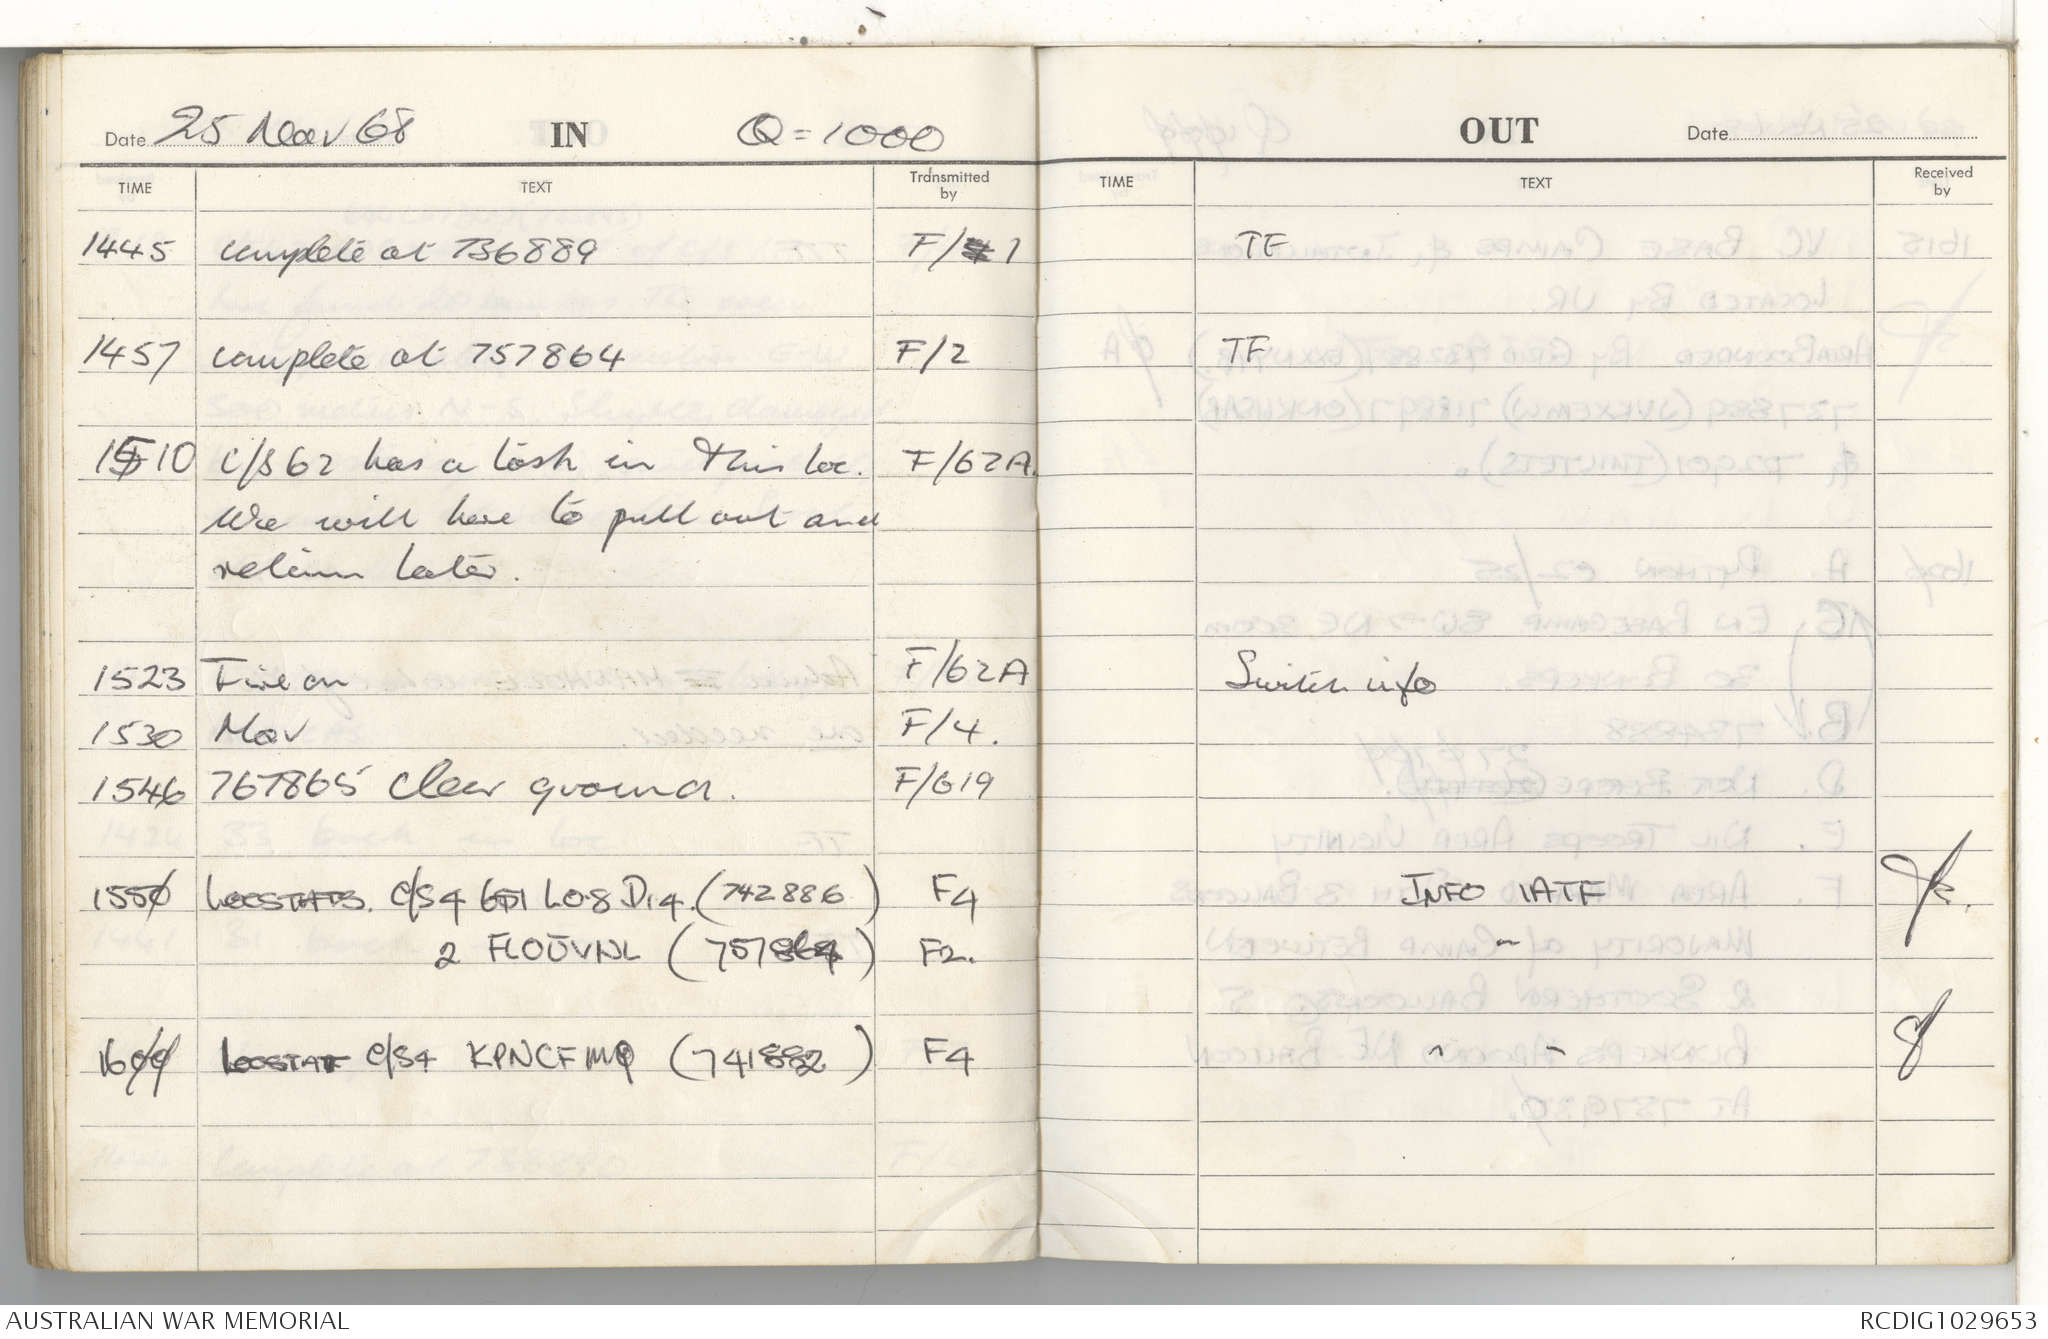 Date 25 Nov 68 IN Q = 1000
TIME TEXT Transmitted by
1445 complete at 736889 F/1
1457 complete at 757864 F/2
1510 C/S 62 has a task in this loc. F/62A.
We will have to pull out and
return later.
1523 Fire on F/62A
1530 Mov F/4.
1546 767865 clear ground. F/619
1550 LOCSTATS. C/S 4 (742886) F4
2 FLOUVNL (757864) F2.
1600 LOCSTAT C/S 4 KPNCFMQ (741882) F4
OUT Date
TIME TEXT Received by
TF
TF
Switch info
INFO 1ATF
AUSTRALIAN WAR MEMORIAL
RCDIG1029653